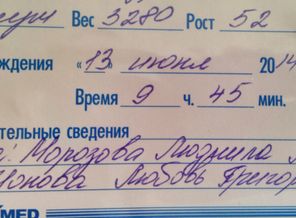 Вес 3280 Рост 52
ждения «13» июня 2014
Время 9 ч. 45 мин.
тельные сведения
Морозова Людмила
Любовь Григор
MED